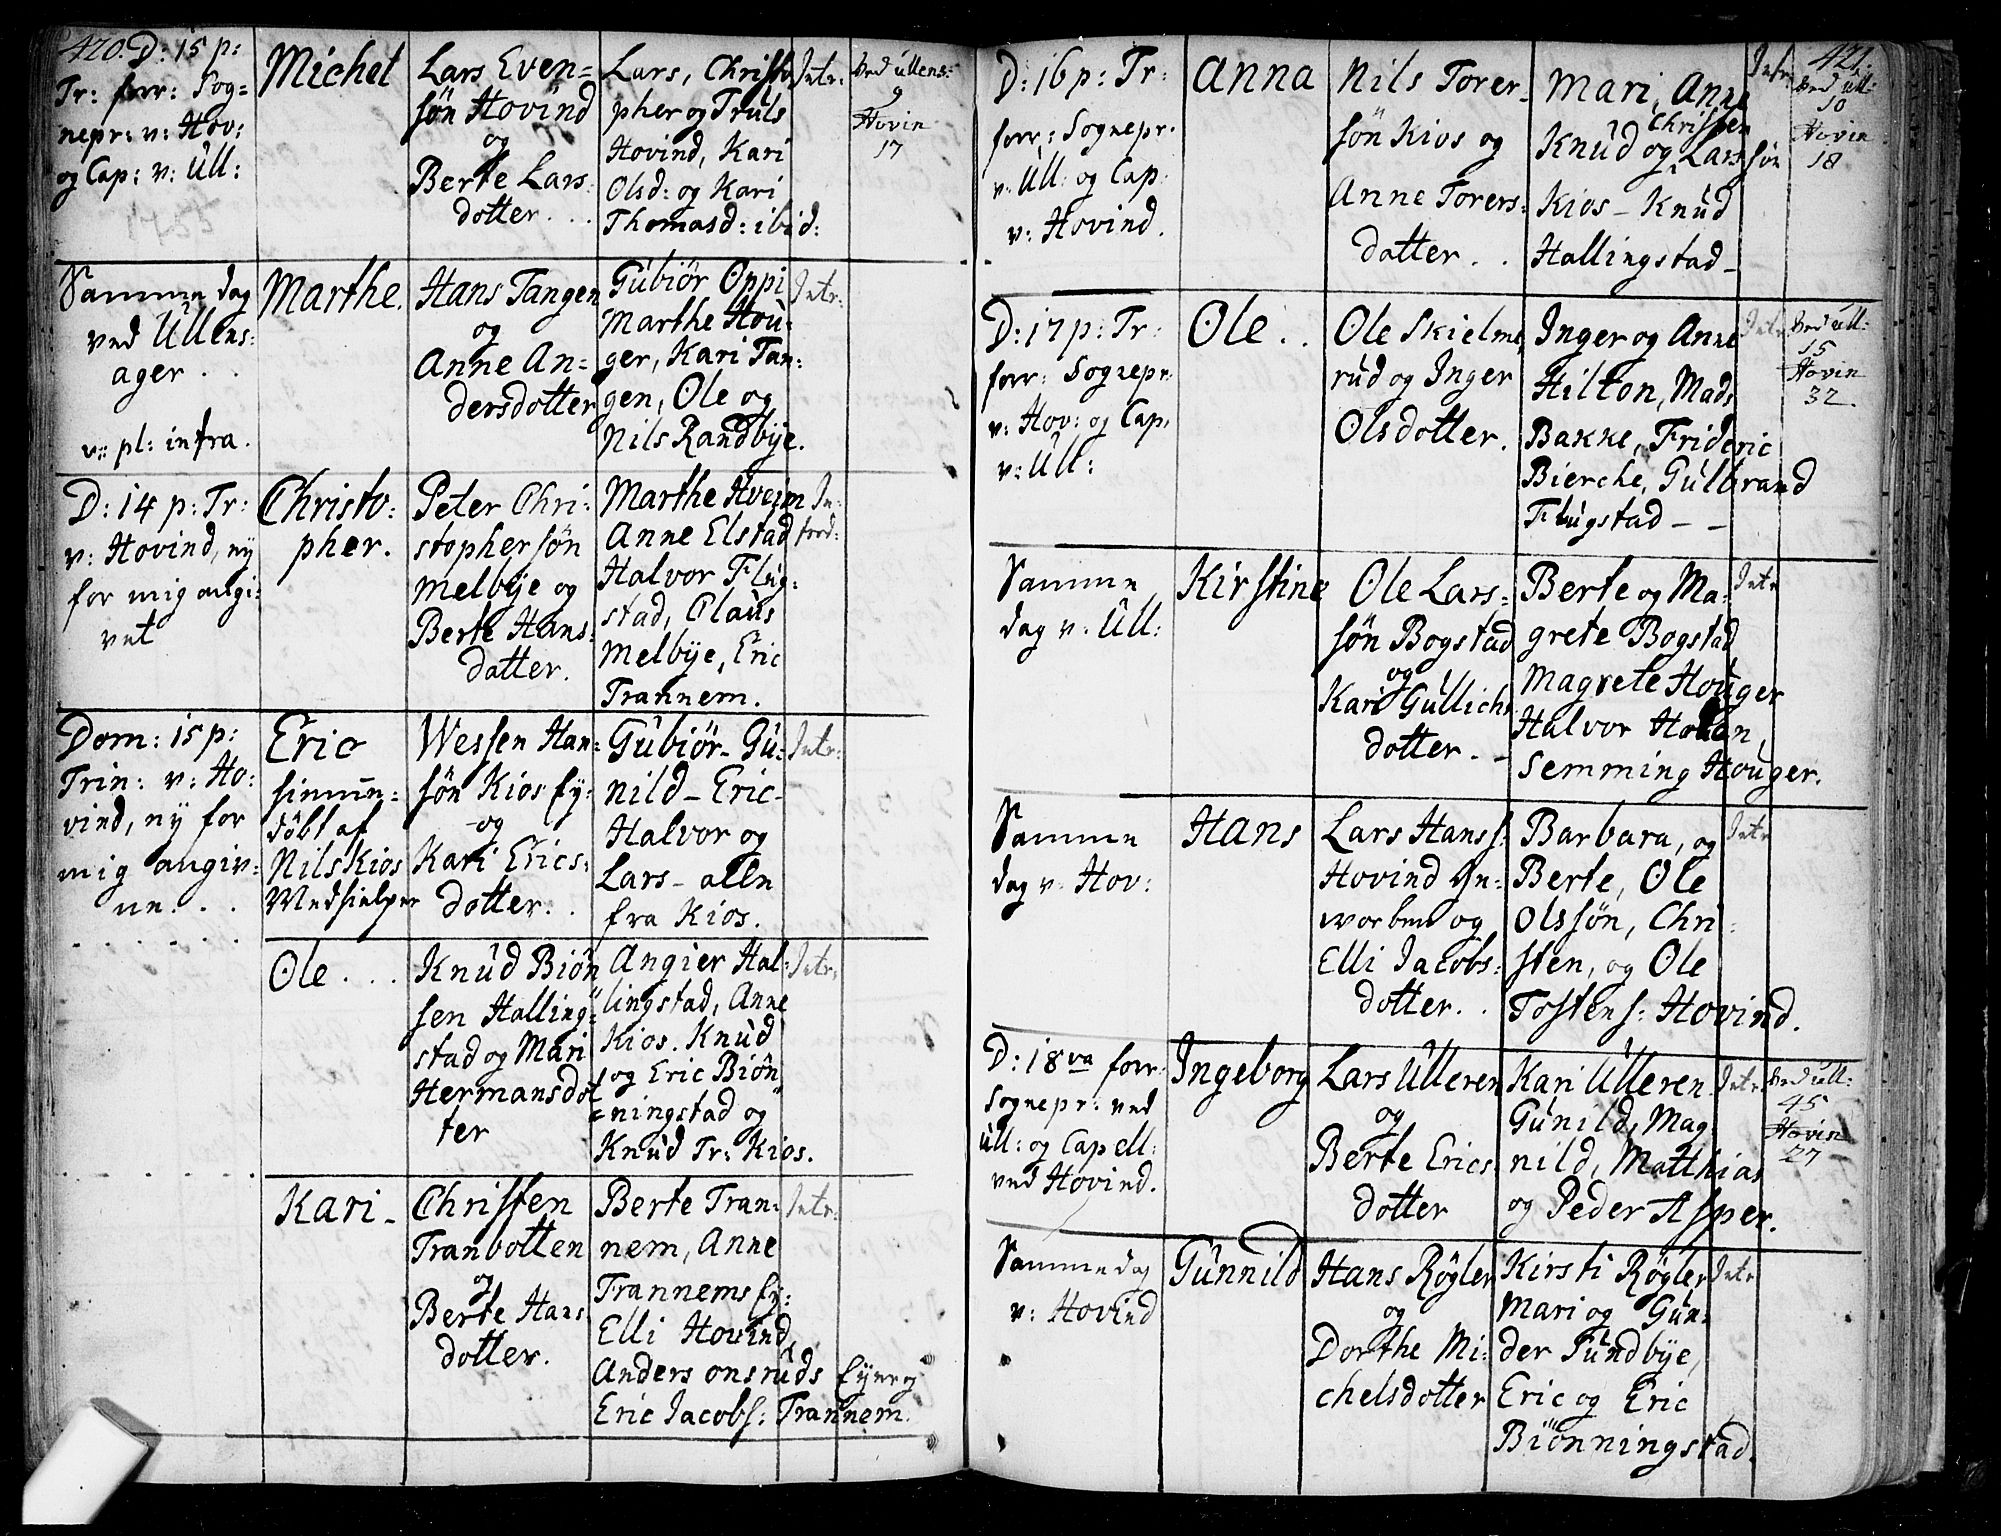 420. D: 15 p:
Tr: forr: Sog=
nepr: v: Hov:
og Cap: v: Ull:
Michel
Lars Even=
søn Hovind
og
Berte Lars=
dotter . . .
Lars, Christo
pher og Truls
Hovind, Kari
Olsd: og Kari
Thomasd: ibid:
Intr:
Ved ullens:
9
Hovin
17
Samme dag
ved Ullens:
ager . .
v: pl: infra.
Marthe.
Hans Tangen
og
Anne An=
dersdotter
Gubiør Oppi
Marthe Hou=
ger, Kari Tan=
gen, Ole og
Nils Randbÿe.
Intr:
D: 14 p: Tr:
v: Hovind, nÿ
for mig angi:
vet
Christo:
pher.
Peter Chri:
stophersøn
Melbÿe og
Berte Hans:
datter.
Marthe Hveim
Anne Elstad
Halvor Flug:
stad, Claus
Melbÿe, Eric
Trannem.
In:
trod:
Dom: 15 p:
Trin: v: Ho:
vind, nÿ for
mig angiv:
ne. . .
Eric
døbt af
Nils Kios
Medhielper
Wessen Han=
søn Kios Ey:
og
Kari Erics:
dotter. .
Gubiør - Gu=
nild - Eric -
Halvor og
Lars - alle
fra Kios.
Intr:
Ole . . .
Knud Biôn
sen Halling=
stad og Mari
Hermansdot
ter
Angier Hal:
lingstad, Anne
Kios. Knud
og Eric Biôn
=ningstad og
Knud Tr: Kios.
Intr:
Kari -
Christen
Tranbotten
og
Berte Hans
dotter.
Berte Tran=
nem, Anne
Trannems Ey:
Elli Hovind,
Anders onsruds Eyne og
Eric Jacobs: Trannem.
Intr:
D: 16 p: Tr:
forr: Sognepr.
v: Ull: og Cap:
v: Hovind.
Anna
Nils Torer=
søn Kios og
Anne Torers:
datter . .
Mari, Anne
Christen
Knud og Larssøn
Kios - Knud
Hallingstad -
Intr.
421.
Ved Ull:
10
Hovin
18
D: 17 p: Tr:
forr: Sognepr.
v: Hov: og Cap.
v: Ull:
Ole . .
Ole Skielme
rud og Inger
Olsdotter.
Inger og Anne
Hilton, Mads
Bakke, Frideric
Bierche, Gulbrand
Flugstad - -
Intr
Ved ull:
15
Hovin
32.
Samme
dag v. Ull:
Kirstine
Ole Lars=
søn Bogstad
og
Kari Gullichs
dotter . -
Berte og Ma=
grete Bogstad
Magrete Houger
Halvor Holan,
Semming Houger.
Intr
Samme
dag v. Hov:
Hans
Lars Hanss:
Hovind Ge=
worben og
Elli Jacobs:
dotter. .
Barbara, og
Berte, Ole
Olssøn, Chri=
sten, og Ole
Tostens: Hovind.
Intr
D: 18va forr.
Sognepr: ved
Ull: og Capell:
ved Hovind.
Ingeborg
Lars Ulleren
og
Berte Erics
dotter
Kari Ulleren.
Gunild, Mag=
nild, Matthias
og Peder Asper.
Intr
Ved ull:
45
Hovin
27
Samme dag
v: Hovind
Gunnild
Hans Røgler
og
Dorthe Mi=
chelsdotter
Kirsti Røgler,
Mari og Gun=
der Sundbÿe,
Eric og Eric
Biönningstad.
Intr